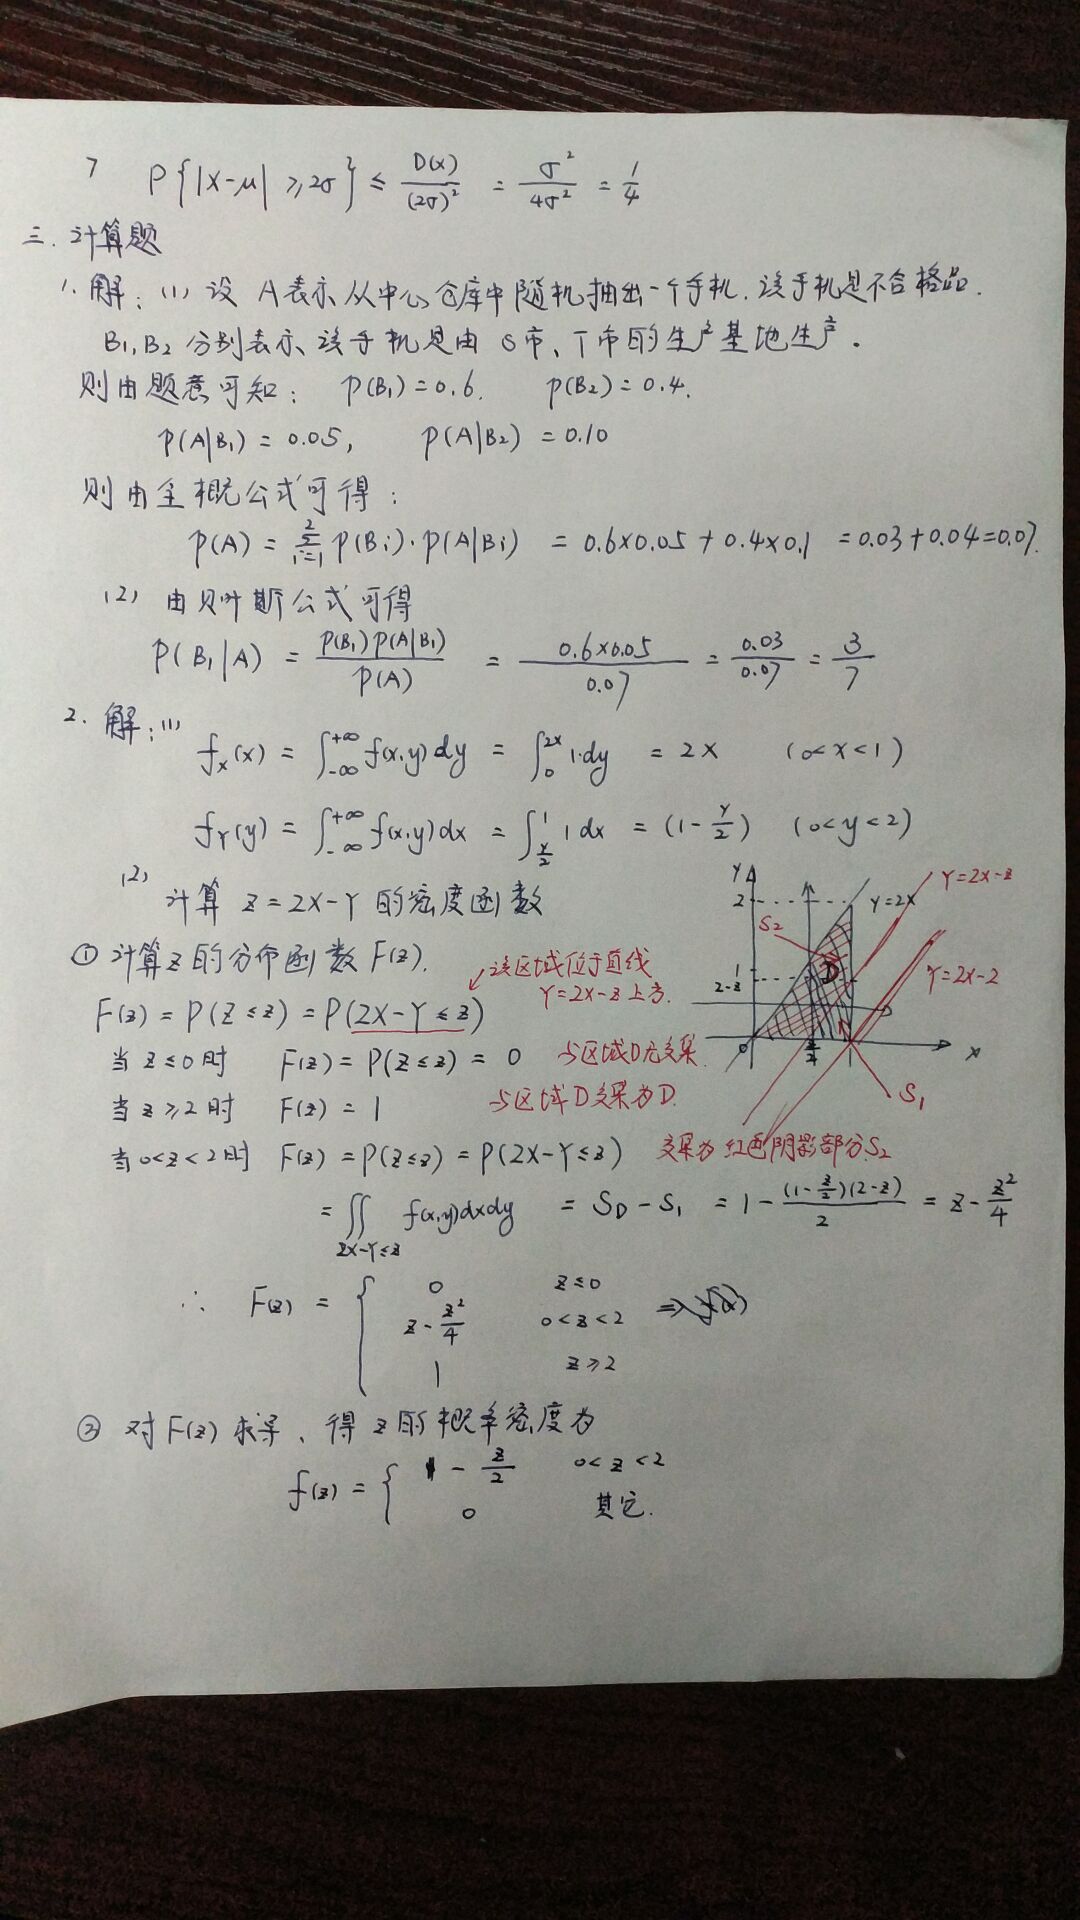 7 P{|X-μ| ≥ 2σ} ≤ D(X)/(2σ)² = σ²/4σ² = 1/4
三. 计算题
1. 解: (1) 设 A表示从中心仓库中随机抽出一个手机. 该手机是不合格品.
B₁, B₂ 分别表示该手机是由 S市、T市的生产基地生产.
则由题意可知: P(B₁)=0.6. P(B₂)=0.4.
P(A|B₁) = 0.05, P(A|B₂) = 0.10
则由全概公式可得:
P(A) = Σ_{i=1}^{2} P(Bi)·P(A|Bi) = 0.6×0.05 + 0.4×0.1 = 0.03+0.04=0.07.
(2) 由贝叶斯公式可得
P(B₁|A) = P(B₁)P(A|B₁)/P(A) = 0.6×0.05/0.07 = 0.03/0.07 = 3/7
2. 解: (1)
f_X(x) = ∫_{-∞}^{+∞} f(x,y)dy = ∫_{0}^{2x} 1·dy = 2x (0<x<1)
f_Y(y) = ∫_{-∞}^{+∞} f(x,y)dx = ∫_{y/2}^{1} 1dx = (1-y/2) (0<y<2)
(2) 计算 Z=2X-Y 的密度函数
① 计算Z的分布函数 F(z).
该区域位于直线
Y=2X-z 上方.
F(z) = P(Z≤z) = P(2X-Y≤z)
当 z≤0时 F(z) = P(Z≤z) = 0 与区域D无交集.
当 z≥2时 F(z) = 1 与区域D交集为D.
当 0<z<2时 F(z) = P(Z≤z) = P(2X-Y≤z) 交集为红色阴影部分S₂
= ∬_{2X-Y≤z} f(x,y)dxdy = S_D - S₁ = 1 - (1-z/2)(2-z)/2 = z - z²/4
Y
2
1
2-z
0
z/2
X
Y=2X
Y=2X-z
Y=2X-2
S₂
D
S₁
∴ F(z) = { 0 z≤0
z - z²/4 0<z<2 =>
1 z≥2
② 对F(z)求导、得 z的概率密度为
f(z) = { 1 - z/2 0<z<2
0 其它.